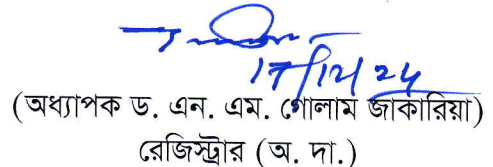 ১৭/১২/২৪
(অধ্যাপক ড. এন. এম. গোলাম জাকারিয়া)
রেজিস্ট্রার (অ. দা.)